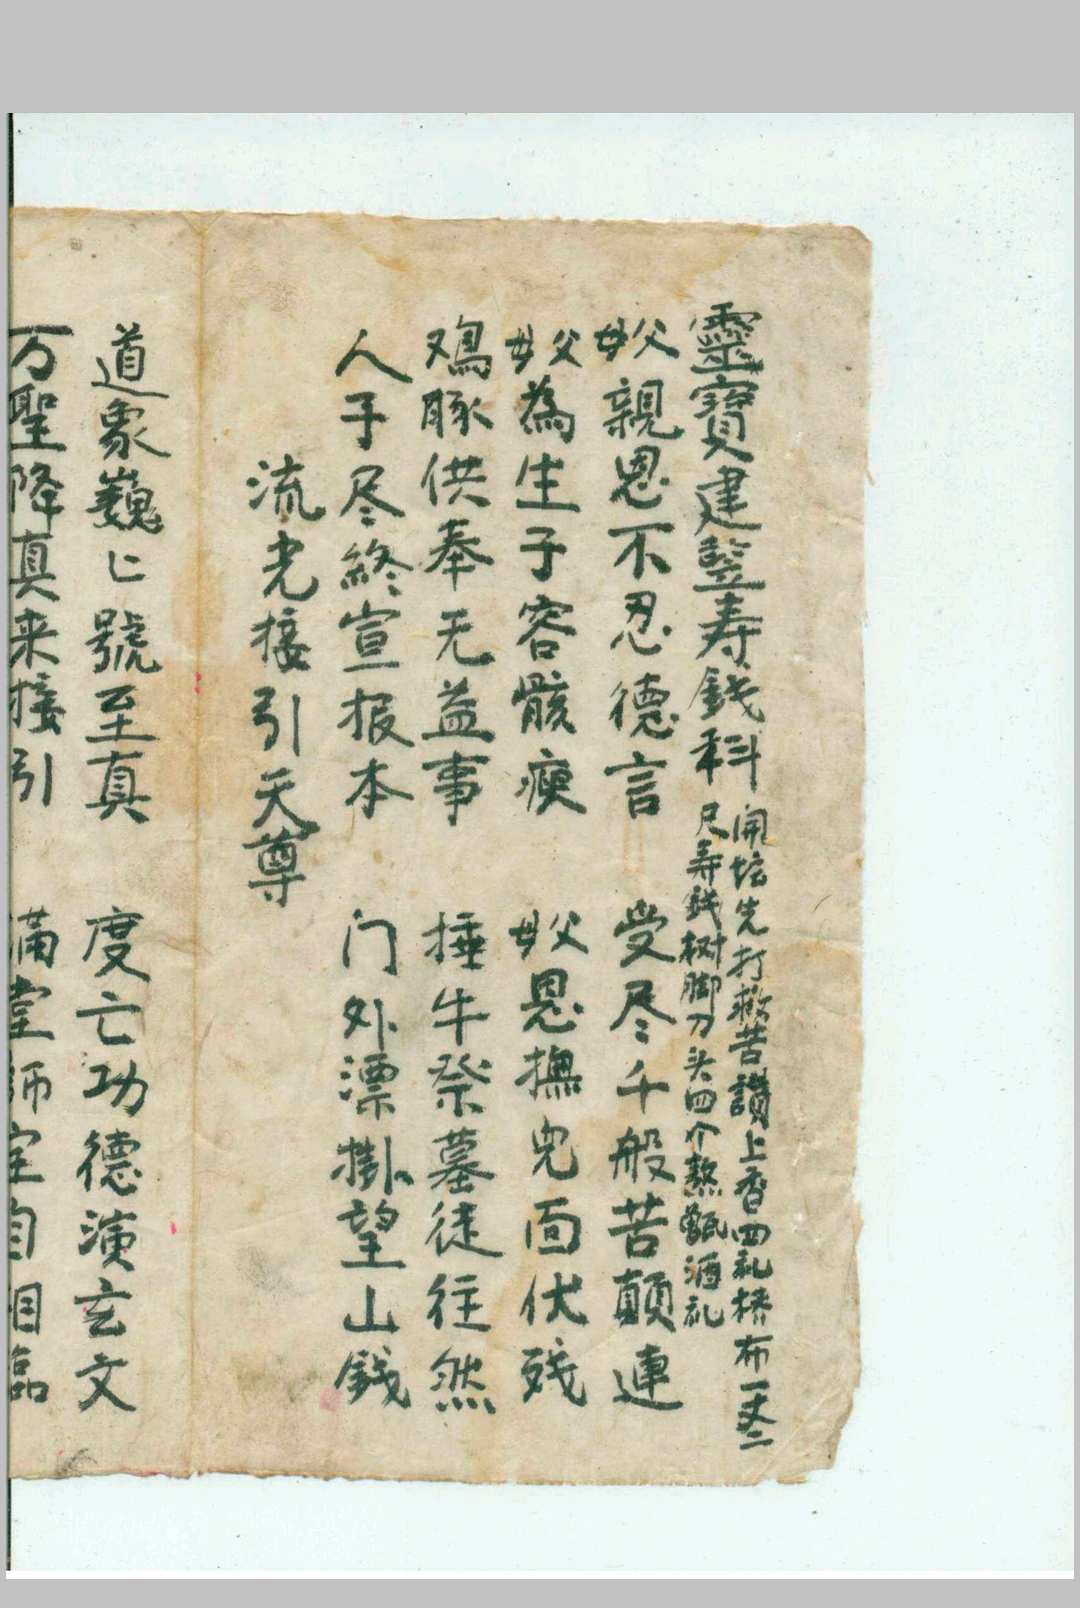 靈寶建豎寿錢科
開坛先打救苦讃上香四礼桥布一丈二
尺寿錢树脚刀头四个熬甑酒礼
父母親恩不忍德言 受尽千般苦顛連
父母為生子容骸瘦 父母恩撫児面伏残
鳮豚供奉无益事 捶牛祭墓徒往然
人子尽終宣报本 门外漂掛望山錢
流光接引天尊
道象巍〻號至真 度亡功德演玄文
万聖降真来接引 满堂師宝自相臨